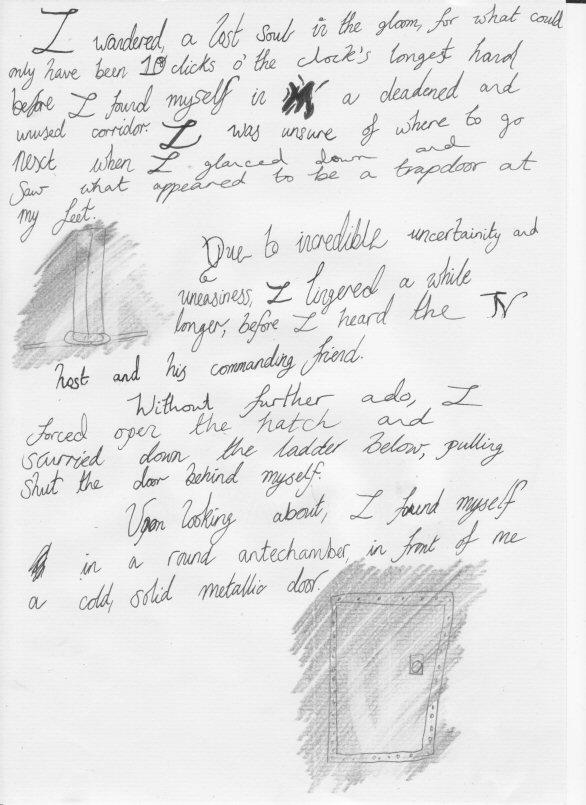 I wandered, a lost soul in the gloom, for what could
only have been 10 clicks o' the clock's longest hand
before I found myself in a deadened and
unused corridor. I was unsure of where to go
next when I glanced down and
saw what appeared to be a trapdoor at
my feet.
Due to incredible uncertainity and
uneasiness, I lingered a while
longer, before I heard the
host and his commanding friend.
Without further ado, I
forced open the hatch and
scurried down the ladder below, pulling
shut the door behind myself.
Upon looking about, I found myself
in a round antechamber, in front of me
a cold, solid metallic door.